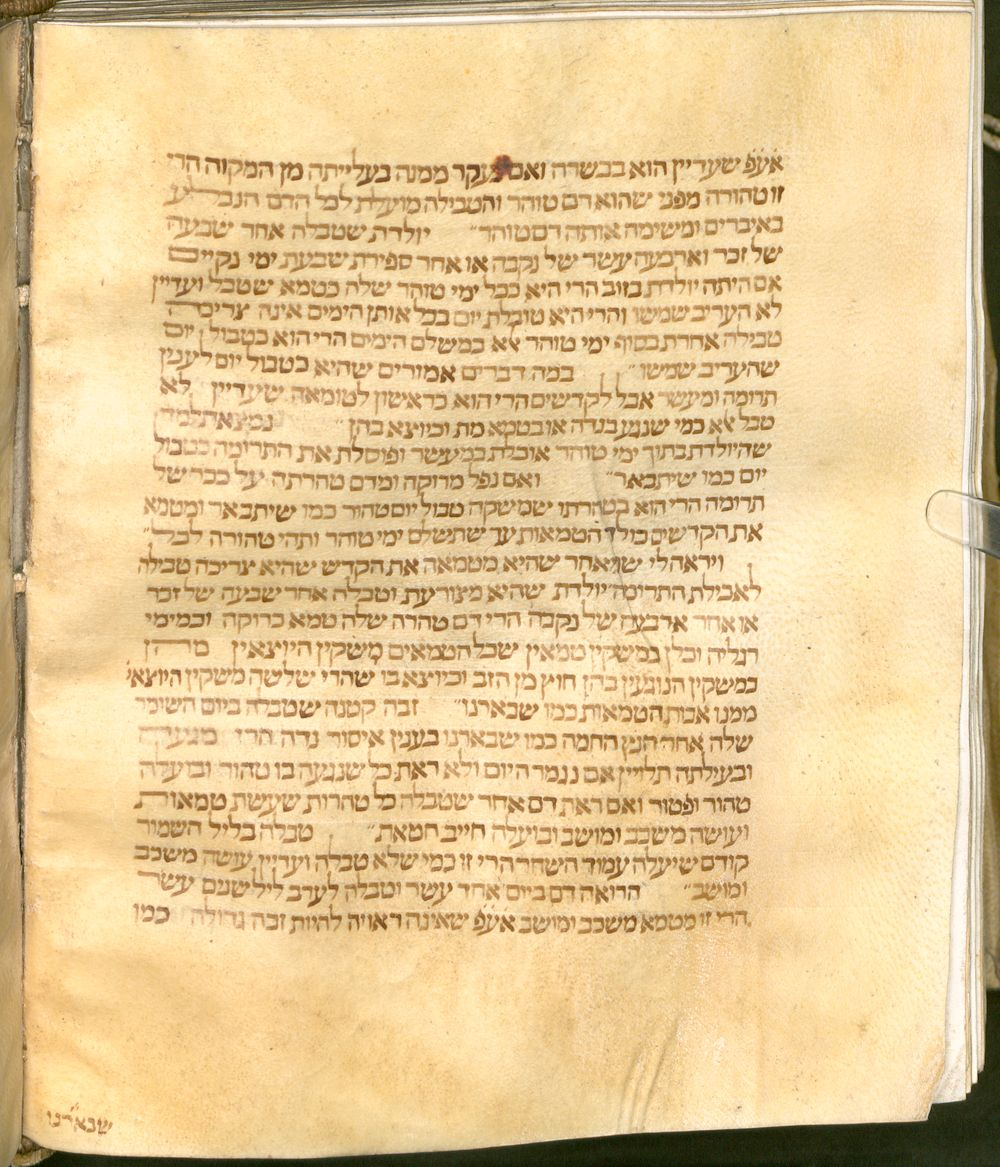 אע֗פ֗ שעדיין הוא בבשרה ואם נעקר ממנה בעלייתה מן המקוה הרי
זו טהורה מפני שהוא דם טוהר והטבילה מועלת לכל הדם הנבלע
באיברים ומשימה אותה דם טוהר״ יולדת שטבלה אחד שבעה
של זכר וארבעה עשר של נקבה או אחר ספירת שבעת ימי נקיים
אם היתה יולדת בזוב הרי היא ככל ימי טוהר שלה כטמא שטבל ועדיין
לא העריב שמשו והרי היא טובלת יום בכל אותן הימים אינה צריכה
טבילה אחרת בסוף ימי טוהר אלא כמשלם הימים הרי הוא כטבול יום
שהעריב שמשו״ במה דברים אמורים שהיא כטבול יום לענין
תרומה ומעשר אבל לקדשים הרי הוא כראשון לטומאה שעדיין לא
טבל אלא כמי שנגע בנדה או בטמא מת וכיוצא בהן״ נמצאת למד
שהיולדת בתוך ימי טוהר אוכלת במעשר ופוסלת את התרומה כטבול
יום כמו שיתבאר״ ואם נפל מרוקה ומדם טהרתה על ככר של
תרומה הרי הוא בטהרתו שמשקה טבול יום טהור כמו שיתבאר ומטמא
את הקדשים כולד הטמאות עד שתשלם ימי טוהר ותהי טהורה לכל״
ויראה לי שאחר שהיא מטמאה את הקדש שהיא צריכה טבילה
לאכילת התרומה יולדת שהיא מצורעת וטבלה אחד שבעה של זכר
או אחר ארבעה של נקבה הרי דם טהרה שלה טמא כרוקה וכמימי
רגליה וכלן כמשקין טמאין שכל הטמאים משקין היוצאין מהן
כמשקין הנוגעין בהן חוץ מן הזב וכיוצא בו שהרי שלשה משקין היוצאי֗
ממנו אבות הטמאות כמו שבארנו״ זבה קטנה שטבלה ביום השימור
שלה אחר הנץ החמה כמו שבארנו בענין איסור נדה הרי מגעה
ובעילתה תלויין אם נגמר היום ולא ראת כל שנגעה בו טהור ובועלה
טהור ופטור ואם ראת דם אחר שטבלה כל טהרות שעשת טמאות
ועושה משכב ומושב ובועלה חייב חטאת״ טבלה בליל השמור
קודם שיעלה עמוד השחר הרי זו כמי שלא טבלה ועדיין עושה משכב
ומושב״ הרואה דם ביום אחד עשר וטבלה לערב ליל שנים עשר
הרי זו מטמא משכב ומושב אע֗פ֗ שאינה ראויה להיות זבה גדולה כמו
שבארנו